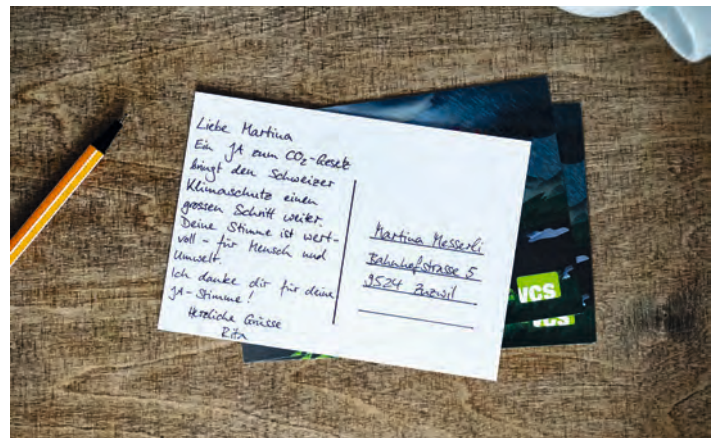 Liebe Martina
Ein JA zum CO₂-Gesetz
bringt den Schweizer
Klimaschutz einen
grossen Schritt weiter.
Deine Stimme ist wert-
voll - für Mensch und
Umwelt.
Ich danke dir für deine
JA-Stimme!
Herzliche Grüsse
Rita
Martina Messerli
Bahnhofstrasse 5
9524 Zuzwil
VCS
VCS